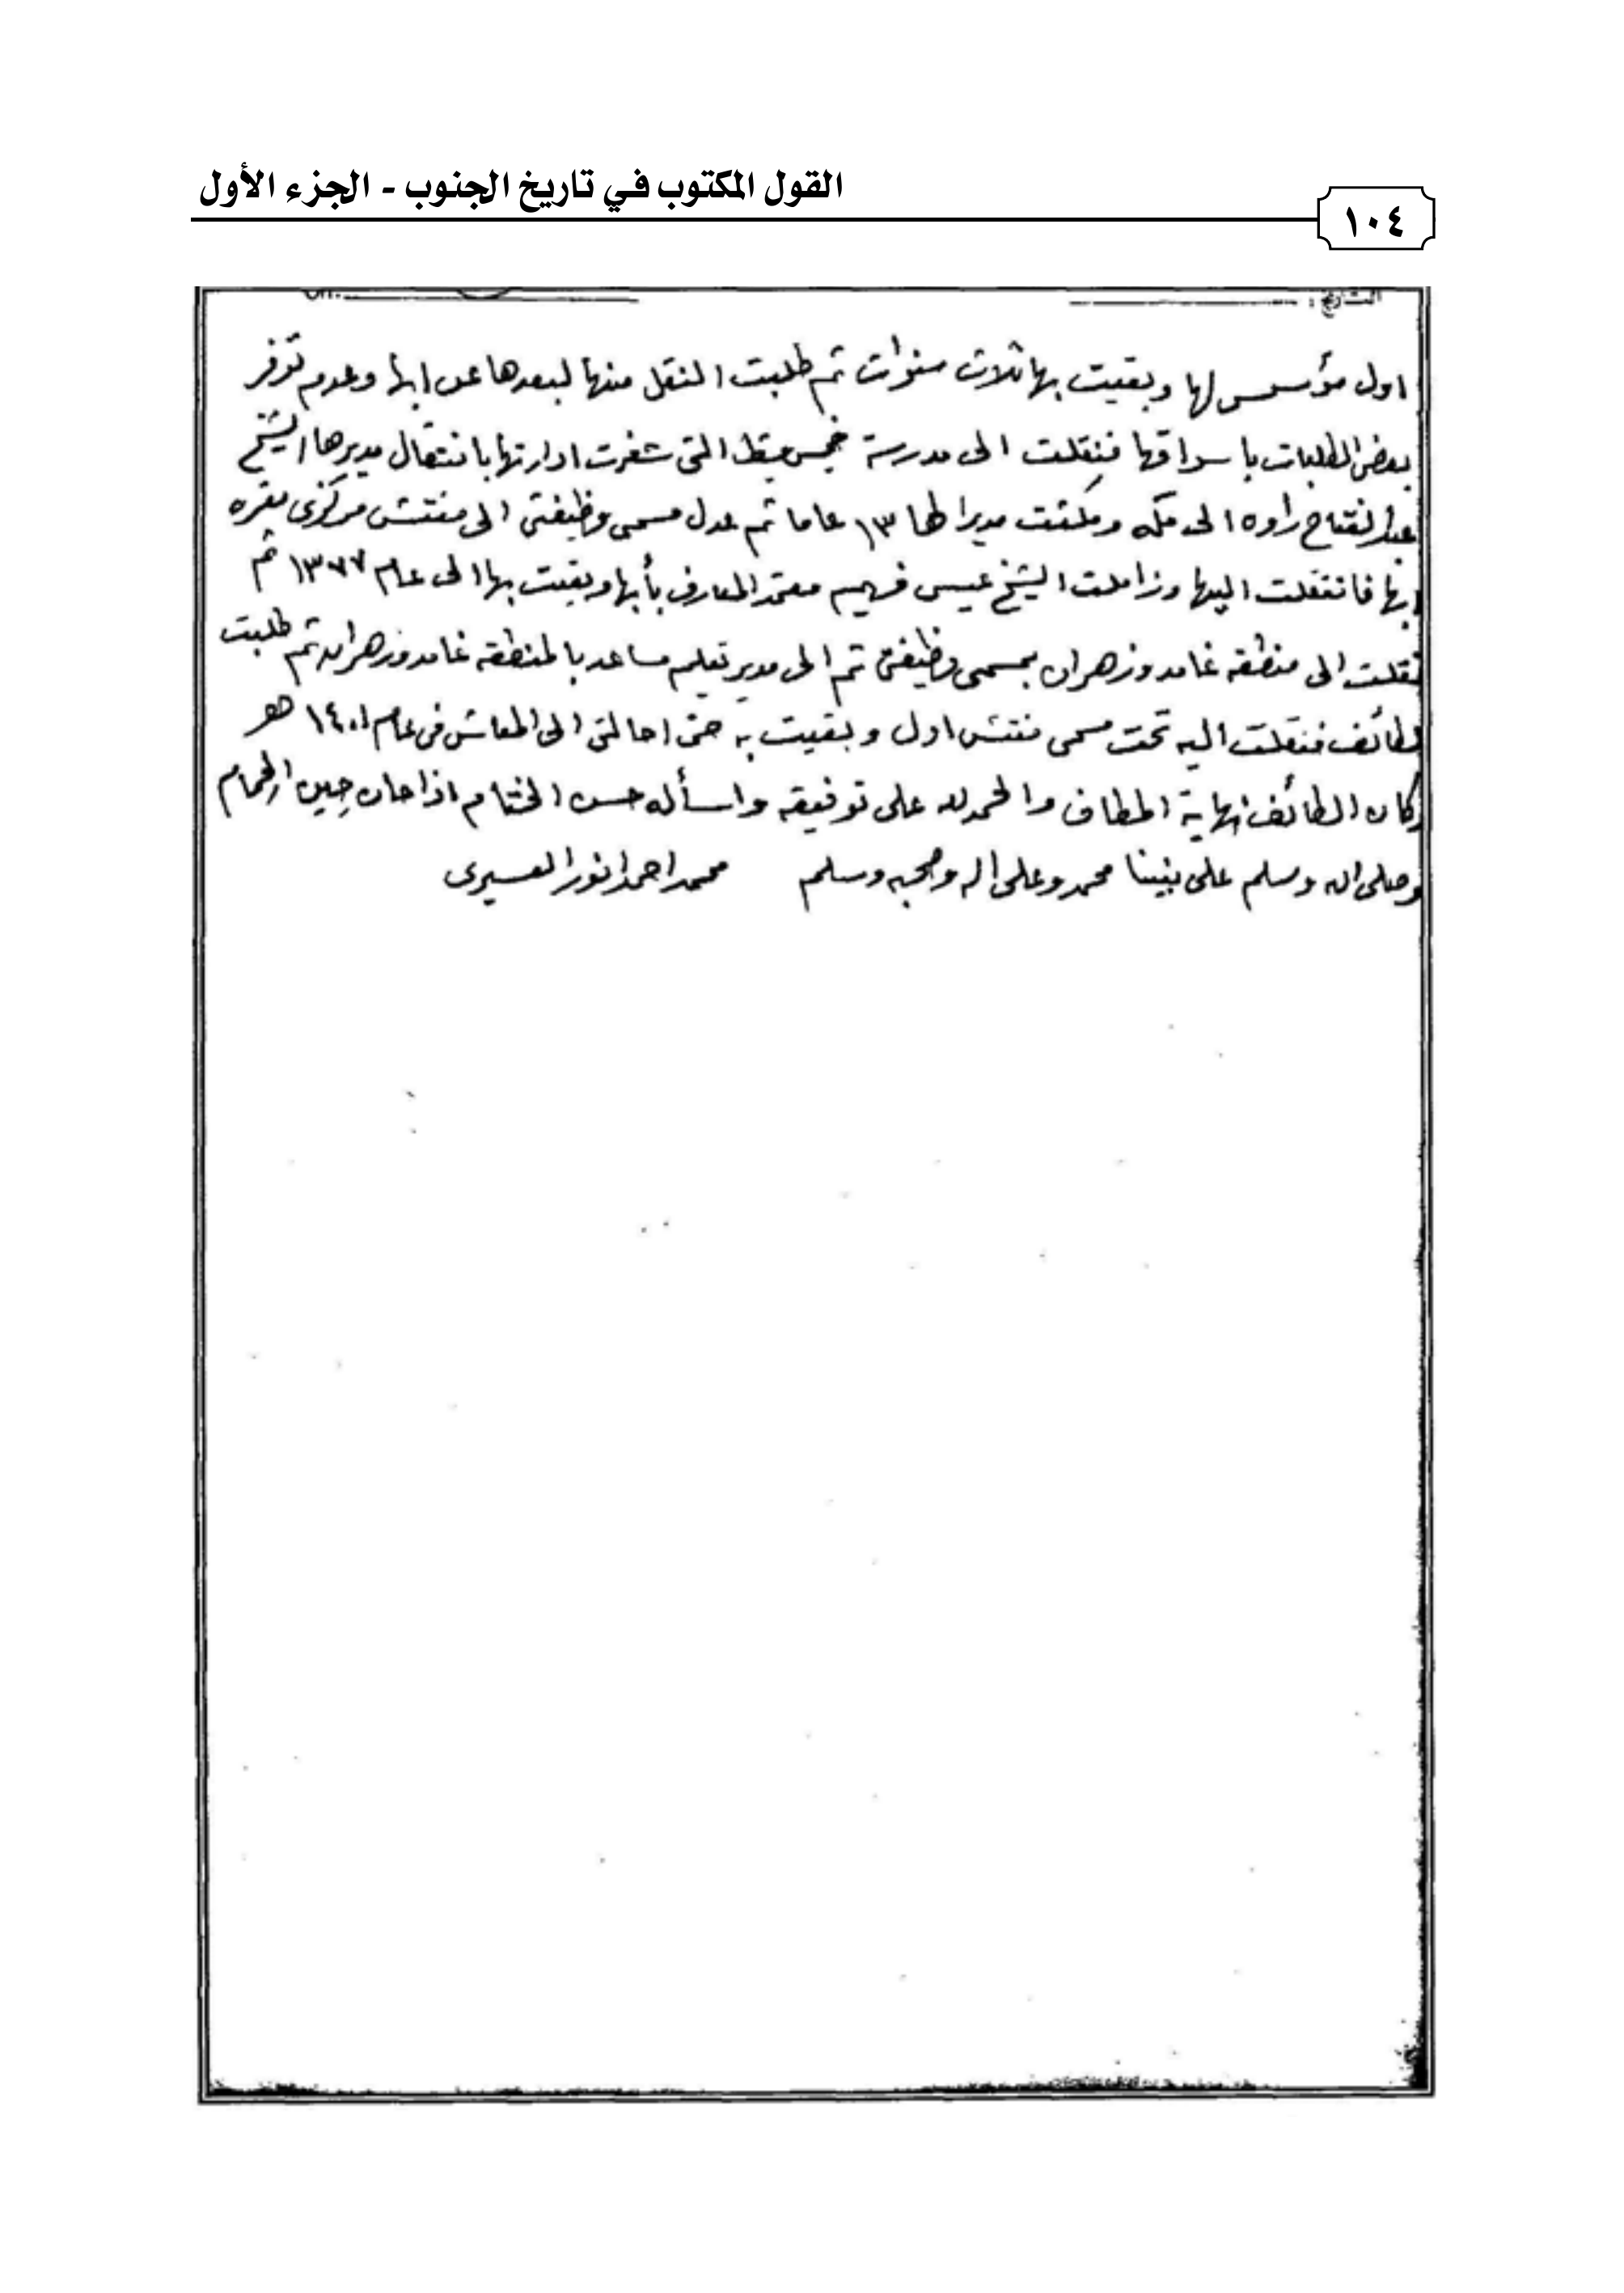 القول المكتوب في تاريخ الجنوب - الجزء الأول
١٠٤
التاريخ :
اول مؤسس لها وبقيت بها ثلاث سنوات ثم طلبت النقل منها لبعدها عن ابها وعدم توفر
بعض الطلبات باسواقها فنقلت الى مدرسة خميس مشيط التى شغرت ادارتها بانتقال مديرها الشيخ
عبدالفتاح راوه الى مكه ومكثت مديرا لها ١٣ عاما ثم عدل مسمى وظيفتى الى مفتش مركزى مقره
ابها فانتقلت اليها وزاملت الشيخ عيسى فهيم معتمد المعارف بأبها وبقيت بها الى عام ١٣٧٧ ثم
نقلت الى منطقه غامد وزهران بمسمى وظيفتى ثم الى مدير تعليم مساعد بالمنطقه غامد وزهران ثم طلبت
لطائف فنقلت اليه تحت مسمى مفتش اول وبقيت به حتى احالتى الى المعاش فى عام ١٤٠١ هـ
وكان الطائف نهاية المطاف والحمد لله على توفيقه واسأله حسن الختام اذا حان حِين الحِمام
وصلى الله وسلم على نبينا محمد وعلى اله وصحبه وسلم محمد احمد انور العسيرى